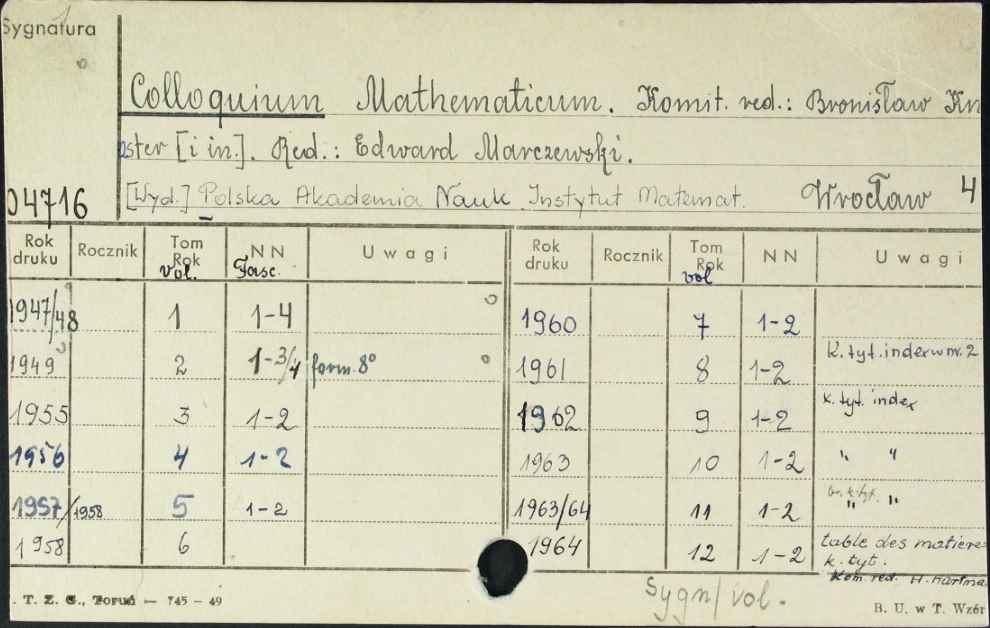 Sygnatura
Colloquium Mathematicum. Komit. red.: Bronisław Kn
aster [i in.]. Red.: Edward Marczewski.
04716 [Wyd.] Polska Akademia Nauk. Instytut Matemat. Wrocław 4
Rok druku Rocznik Tom Rok vol. NN Fasc. Uwagi Rok druku Rocznik Tom Rok vol NN Uwagi
1947/48 1 1-4 1960 7 1-2
1949 2 1-3/4 form. 8° 1961 8 1-2 K. tyt. index w nr. 2
1955 3 1-2 1962 9 1-2 k. tyt. index
1956 4 1-2 1963 10 1-2 " "
1957/1958 5 1-2 1963/64 11 1-2 k. tyt. " "
1958 6 1964 12 1-2 table des matieres
k. tyt.
Kom. red. H. Hartma
. T. Z. G., Toruń — 745 — 49
Sygn/vol.
B. U. w T. Wzór